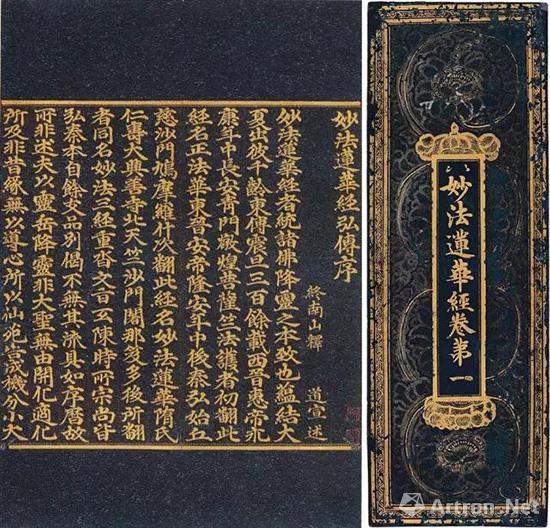 妙法蓮華經弘傳序
終南山釋 道宣述
妙法蓮華經者統諸佛降靈之本致也蘊結大
夏出彼千齡東傳震旦三百餘載西晉惠帝永
康年中長安青門燉煌菩薩竺法護者初翻此
經名正法華東晉安帝隆安年中後秦弘始丘
慈沙門鳩摩羅什次翻此經名妙法蓮華隋氏
仁壽大興善寺北天竺沙門闍那笈多後所翻
者同名妙法三經重沓文旨互陳時所宗尚皆
弘秦本自餘支品別偈不無其流具如序曆故
所非述夫以靈岳降靈非大聖無由開化適化
所及非昔緣無以導心所以仙苑告成機分小大
妙法蓮華經卷第一
Artron.Net